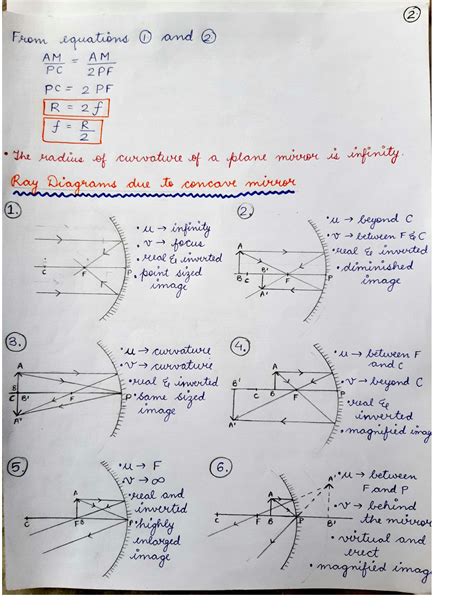 2.
From equations ① and ②
AM/PC = AM/2PF
PC = 2 PF
R = 2f
f = R/2
• The radius of curvature of a plane mirror is infinity.
Ray Diagrams due to concave mirror
1.
• u → infinity
• v → focus
• real & inverted
• point sized
image
C F P
2.
• u → beyond C
• v → between F & C
• real & inverted
• diminished
image
A
B C B' F P
A'
3.
• u → curvature
• v → curvature
• real & inverted
• same sized
image
A
B
C B' F P
A'
4.
• u → between F
and C
• v → beyond C
• real &
inverted
• magnified imag
A
B' C B F P
A'
5.
• u → F
v → ∞
• real and
inverted
• highly
enlarged
image
A
C F B P
6.
• u → between
F and P
• v → behind
the mirror
• virtual and
erect
• magnified imag
A A'
C F B P B'